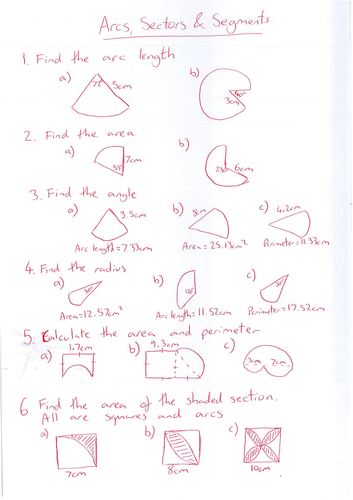 Arcs, Sectors & Segments
1. Find the arc length
a) 72° 5cm
b) 40° 3cm
2. Find the area
a) 55° 7cm
b) 6cm
3. Find the angle
a) 3.5cm
b) 8m
c) 4.2cm
Arc length=7.33cm
Area=25.13cm²
Perimeter=11.33cm
4. Find the radius
a) 40°
b)
c)
Area=12.57cm²
Arc length=11.52cm
Perimeter=17.52cm
5. Calculate the area and perimeter
a) 1.7cm
b) 9.3cm
c) 3cm 7cm
6. Find the area of the shaded section.
All are squares and arcs
a)
b)
c)
7cm
8cm
10cm